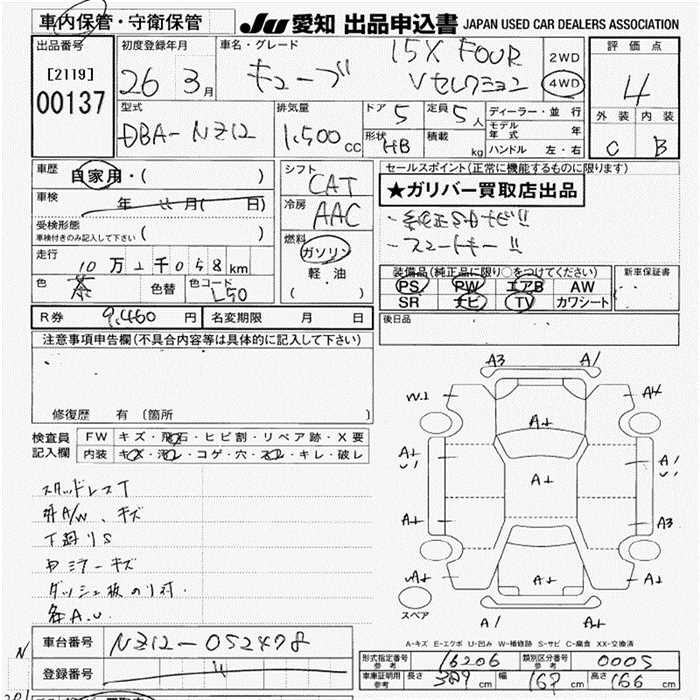 車内保管・守衛保管
JU 愛知 出品申込書 JAPAN USED CAR DEALERS ASSOCIATION
出品番号
[2119]
00137
初度登録年月
26 3月
車名・グレード
キューブ
15X FOUR
Vセレクション
2WD
4WD
評価点
4
外装 内装
C B
型式
DBA-NZ12
排気量
1,500 cc
ドア 5
定員 5人
形状 HB
積載 kg
ディーラー・並行
モデル年式 年
ハンドル 左・右
車歴
自家用・( )
車検
年 月( 日)
受検形態
車検付きのみ記入して下さい ( )
走行
10万2千058km
色 茶 色替 色コード L50
シフト
CAT
冷房
AAC
燃料
ガソリン
軽・油
( )
セールスポイント(正常に機能するものに限ります)
★ガリバー買取店出品
・純正SDナビ!!
・スマートキー!!
装備品(純正品に限り○をつけてください)
PS PW エアB AW
SR ナビ TV カワシート
新車保証書
R券 9,460円 名変期限 月 日
後日品
注意事項申告欄(不具合内容等は具体的に記入して下さい)
修復歴 有 〔箇所
検査員
記入欄
FW キズ・飛石・ヒビ割・リペア跡・X要
内装 キズ・汚れ・コゲ・穴・スレ・キレ・破レ
スタッドレスT
外A/W、キズ
下廻りS
ダッシュ板のり付
各A.U
A3 A1
W1 A4
A+
A+ A1
U1
A+
A+ A3
A+ A+
A+
A1 A+
スペア
A-キズ E-エクボ U-凹み W-補修跡 S-サビ C-腐食 XX-交換済
車台番号 NZ12-052478
登録番号
形式指定番号 参考 16206 類別区分番号 参考 0005
車庫証明用 参考 長さ 389cm 幅 167cm 高さ 166cm